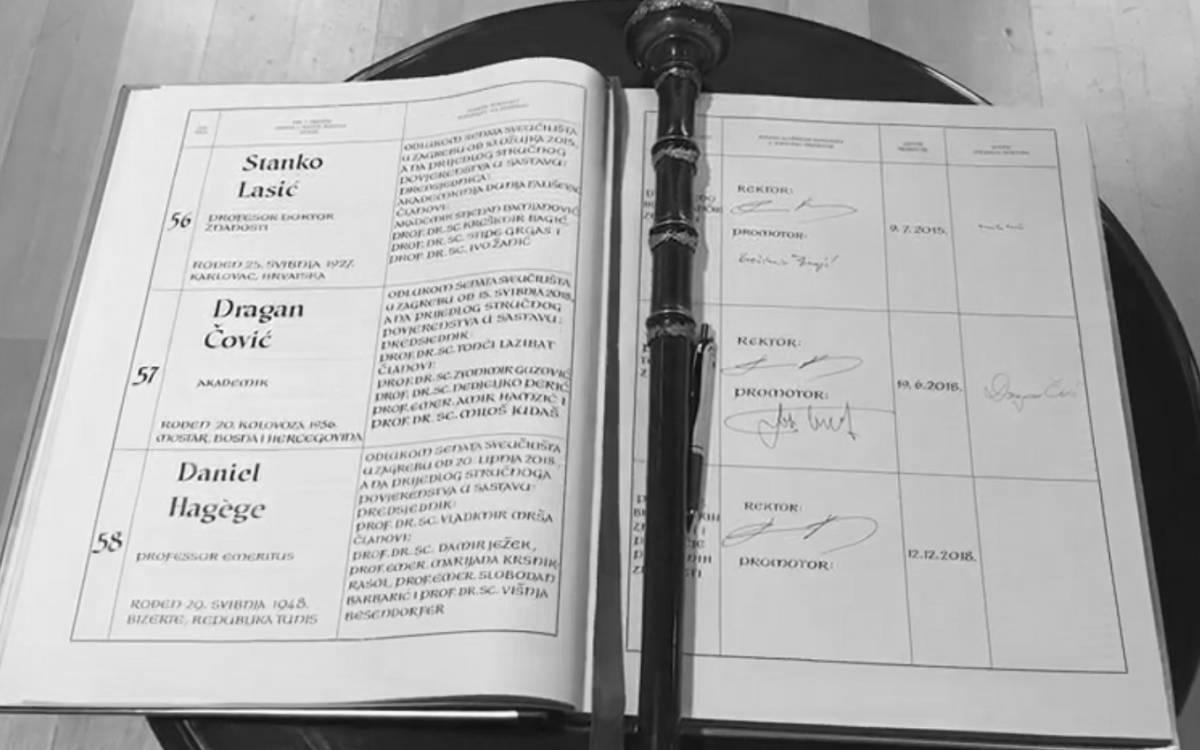 56
Stanko
Lasić
PROFESOR DOKTOR
ZNANOSTI
ROĐEN 25. SVIBNJA 1927.
KARLOVAC, HRVATSKA
ODLUKOM SENATA SVEUČILIŠTA
U ZAGREBU OD 10. OŽUJKA 2015.
A NA PRIJEDLOG STRUČNOG
POVJERENSTVA U SASTAVU:
PREDSJEDNICA:
AKADEMKINJA DUNJA FALIŠEVAC
ČLANOVI:
AKADEMIK STJEPAN DAMJANOVIĆ
PROF. DR. SC. KREŠIMIR BAGIĆ
PROF. DR. SC. STIPE GRGAS I
PROF. DR. SC. IVO ŽANIĆ
REKTOR:
PROMOTOR:
9. 7. 2015.
57
Dragan
Čović
AKADEMIK
ROĐEN 20. KOLOVOZA 1956.
MOSTAR, BOSNA I HERCEGOVINA
ODLUKOM SENATA SVEUČILIŠTA
U ZAGREBU OD 15. SVIBNJA 2018.
A NA PRIJEDLOG STRUČNOG
POVJERENSTVA U SASTAVU:
PREDSJEDNIK:
PROF. DR. SC. TONĆI LAZIBAT
ČLANOVI:
PROF. DR. SC. ZVONIMIR GUZOVIĆ
PROF. DR. SC. NEDJELJKO PERIĆ
PROF. EMER. AMIR HAMZIĆ I
PROF. DR. SC. MILOŠ JUDAŠ
REKTOR:
PROMOTOR:
19. 6. 2018.
58
Daniel
Hagège
PROFESSOR EMERITUS
ROĐEN 29. SVIBNJA 1948.
BIZERTE, REPUBLIKA TUNIS
ODLUKOM SENATA SVEUČILIŠTA
U ZAGREBU OD 20. LIPNJA 2018.
A NA PRIJEDLOG STRUČNOGA
POVJERENSTVA U SASTAVU:
PREDSJEDNIK:
PROF. DR. SC. VLADIMIR MRŠA
ČLANOVI:
PROF. DR. SC. DAMIR JEŽEK,
PROF. EMER. MARIJANA KRSNIK-
RASOL, PROF. EMER. SLOBODAN
BARBARIĆ I PROF. DR. SC. VIŠNJA
BESENDORFER
REKTOR:
PROMOTOR:
12.12.2018.